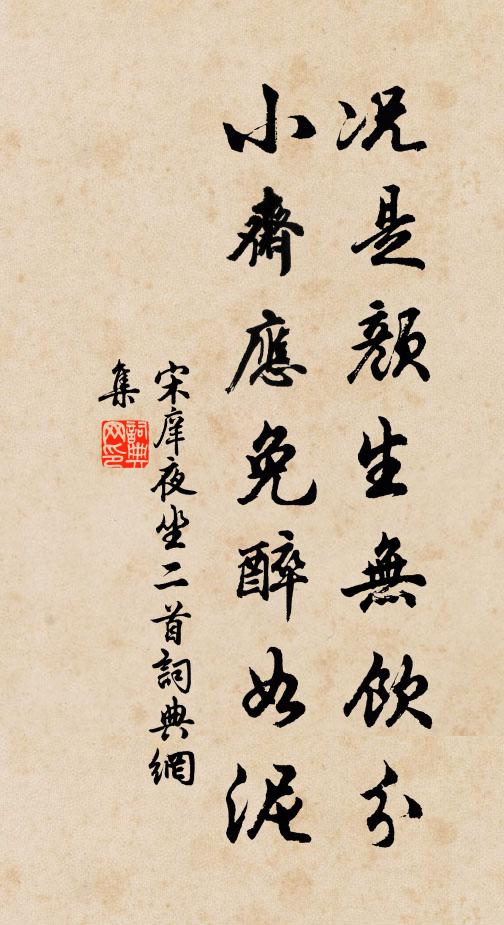 況是顏生無飲分
小齋應免醉如泥
宋庠夜坐二首詞典網
集
詞典网印